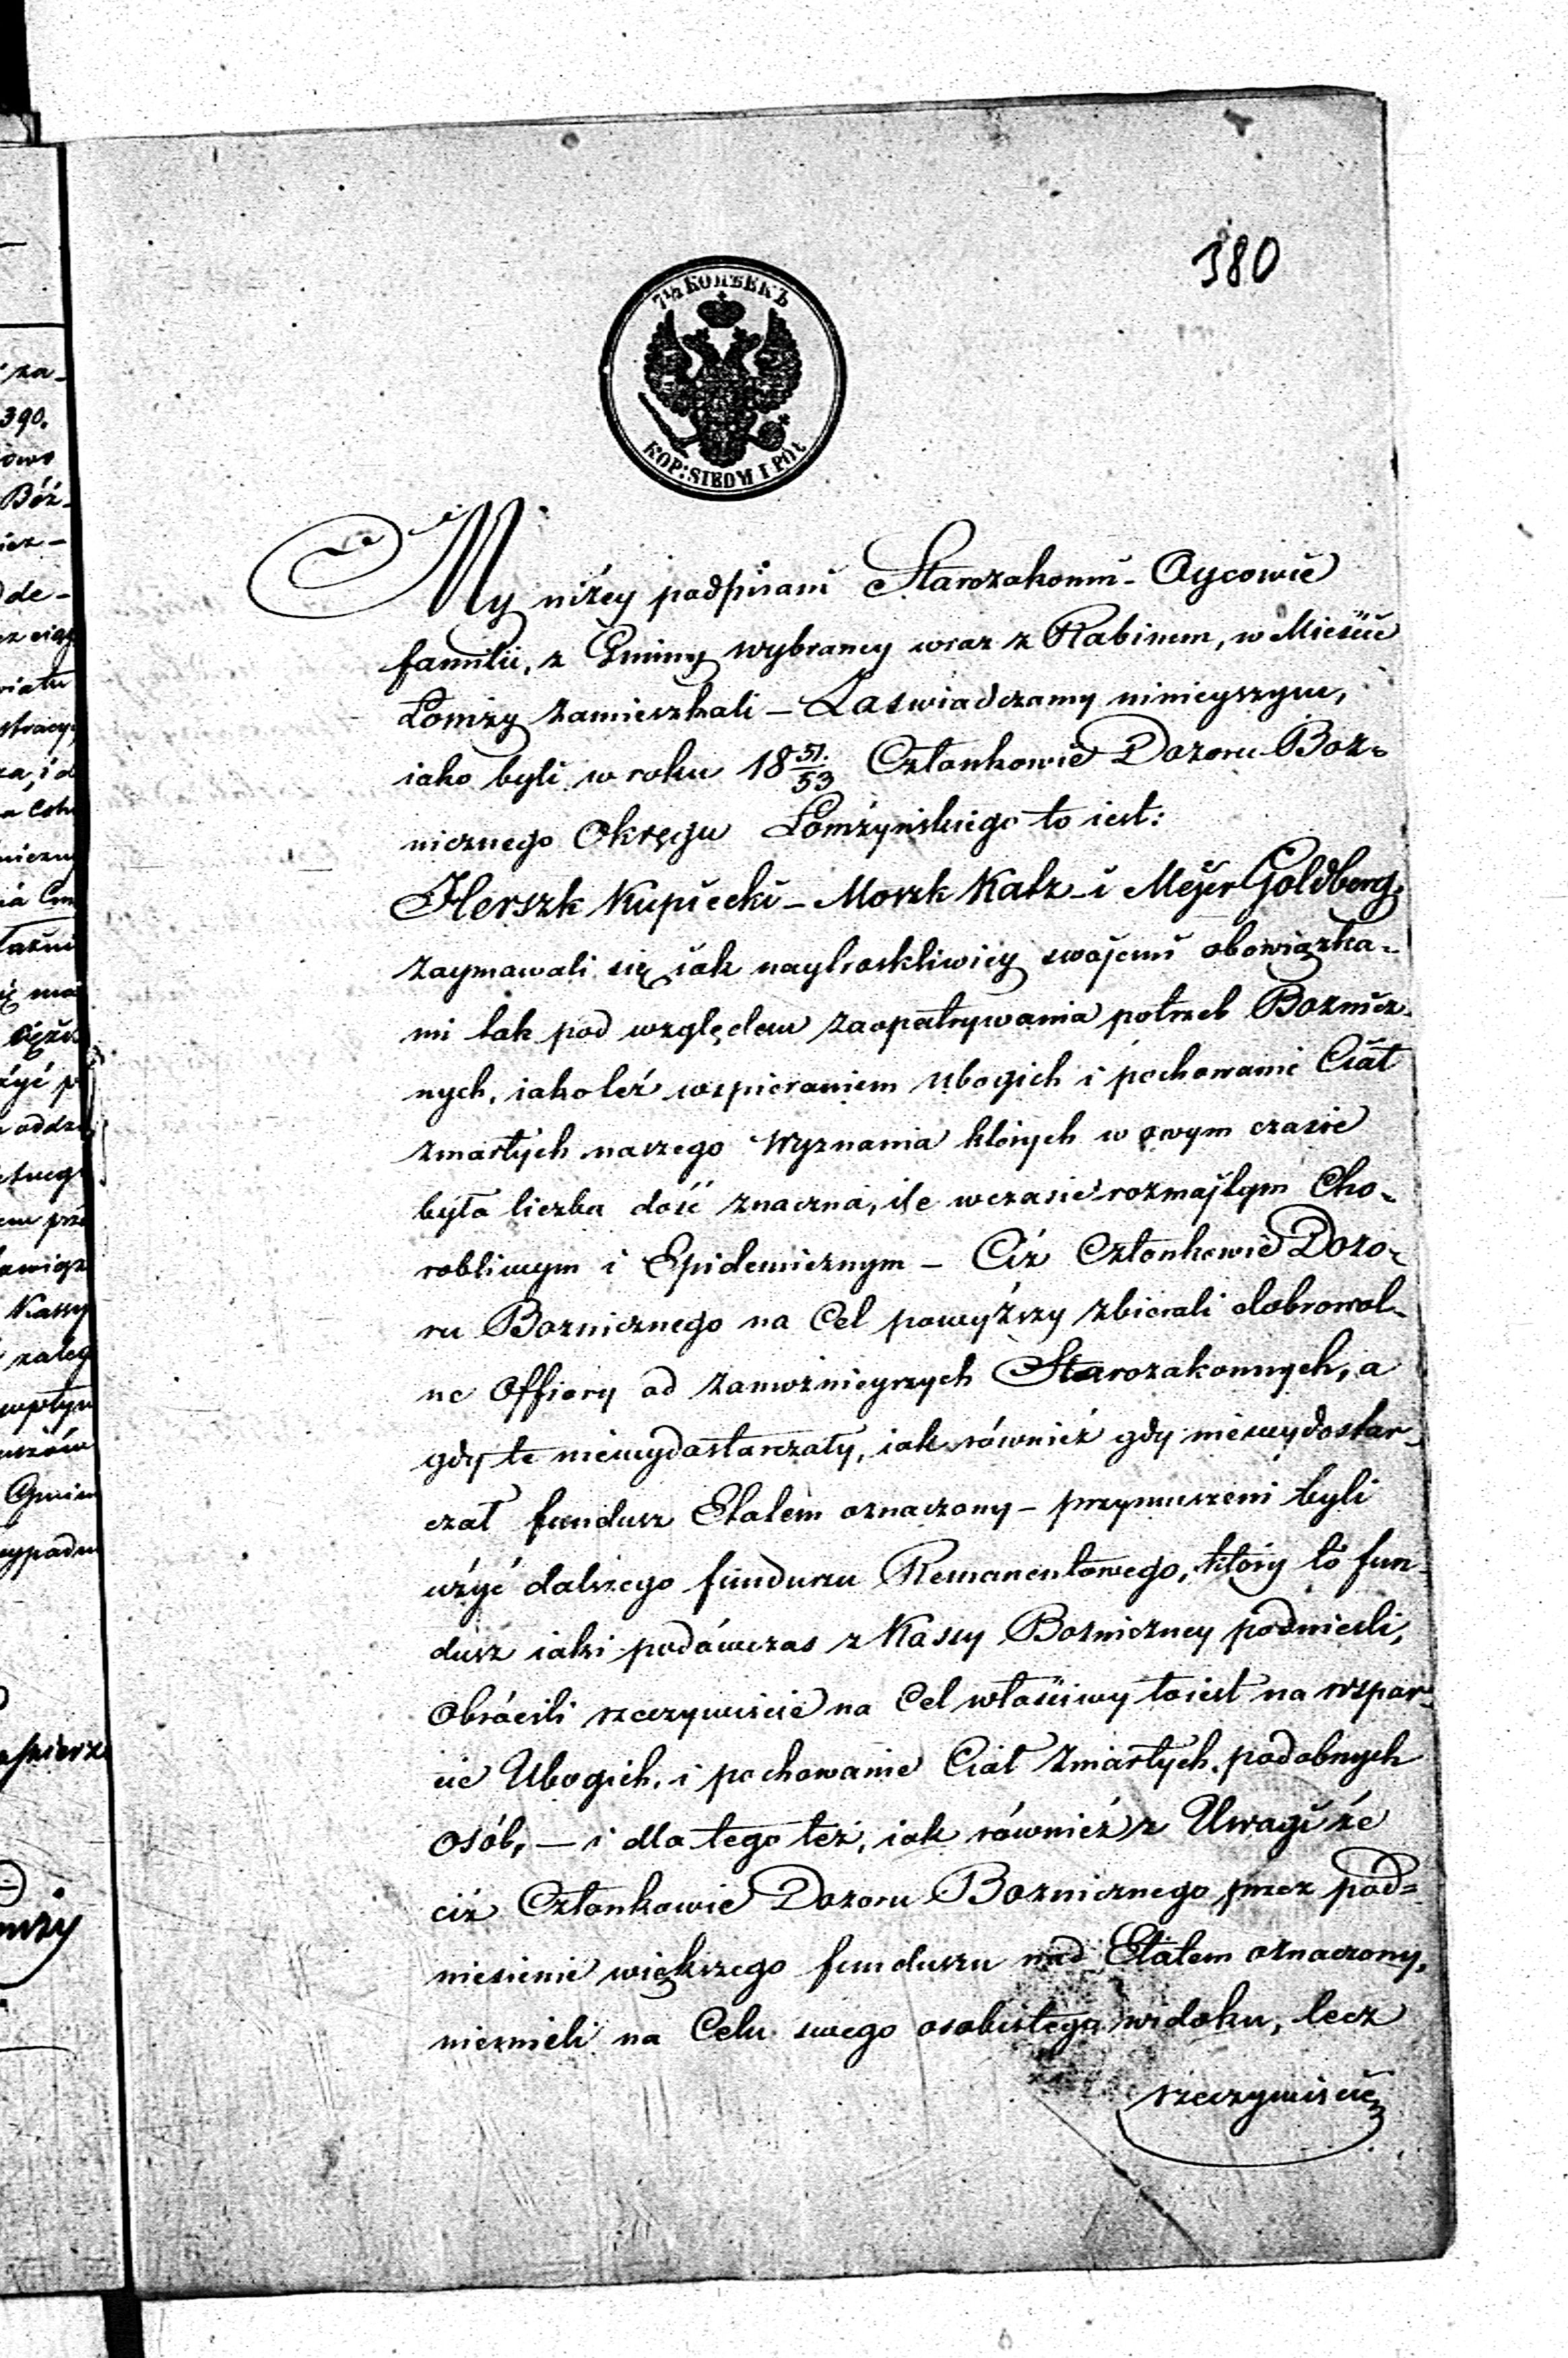 380
7½ КОПѢЕКЪ
KOP: SIEDM I PÓŁ
My niżey podpisani Starozakonni - Oycowie
familii, z Gminy wybrancy wraz z Rabinem, w Mieście
Łomży zamieszkali – Zaświadczamy ninieyszym,
iako byli w roku 18 51/53 Członkowie Dozoru Boz-
nicznego Okręgu Łomżyńskiego to iest:
Herszk Kupiecki – Moszk Katz – i Mejer Goldberg,
zaymowali się iak naytroskliwiey swojemi obowiązka-
mi tak pod względem zaopatrywania potrzeb Boznicz-
nych, iakoteż wspieraniem Ubogich i pochowanie Ciał
zmarłych naszego Wyznania których w owym czasie
była liczba dość znaczna, ile w czasie rozmajtym Cho-
robliwym i Epidemicznym – Ciż Członkowie Dozo-
ru Boznicznego na Cel powyższy zbierali dobrowol-
ne Offiary od zamożnieyszych Starozakonnych, a
gdy te niewydostarczały, iak również gdy niewydostar-
czał fundusz Etatem oznaczony – przymuszeni byli
użyć dalszego funduszu Remanentowego, który to fun-
dusz iaki podówczas z Kassy Bozniczney podnieśli,
Obrócili rzeczywiście na Cel właściwy to iest na wspar-
cie Ubogich, i pochowanie Ciał Zmarłych podobnych
osób, – i dla tego też, iak również z Uwagi że
ciż Członkowie Dozoru Boznicznego przez pod-
niesienie większego funduszu nad Etatem oznaczony,
niemieli na Celu swego osobistego widoku, lecz
rzeczywiście